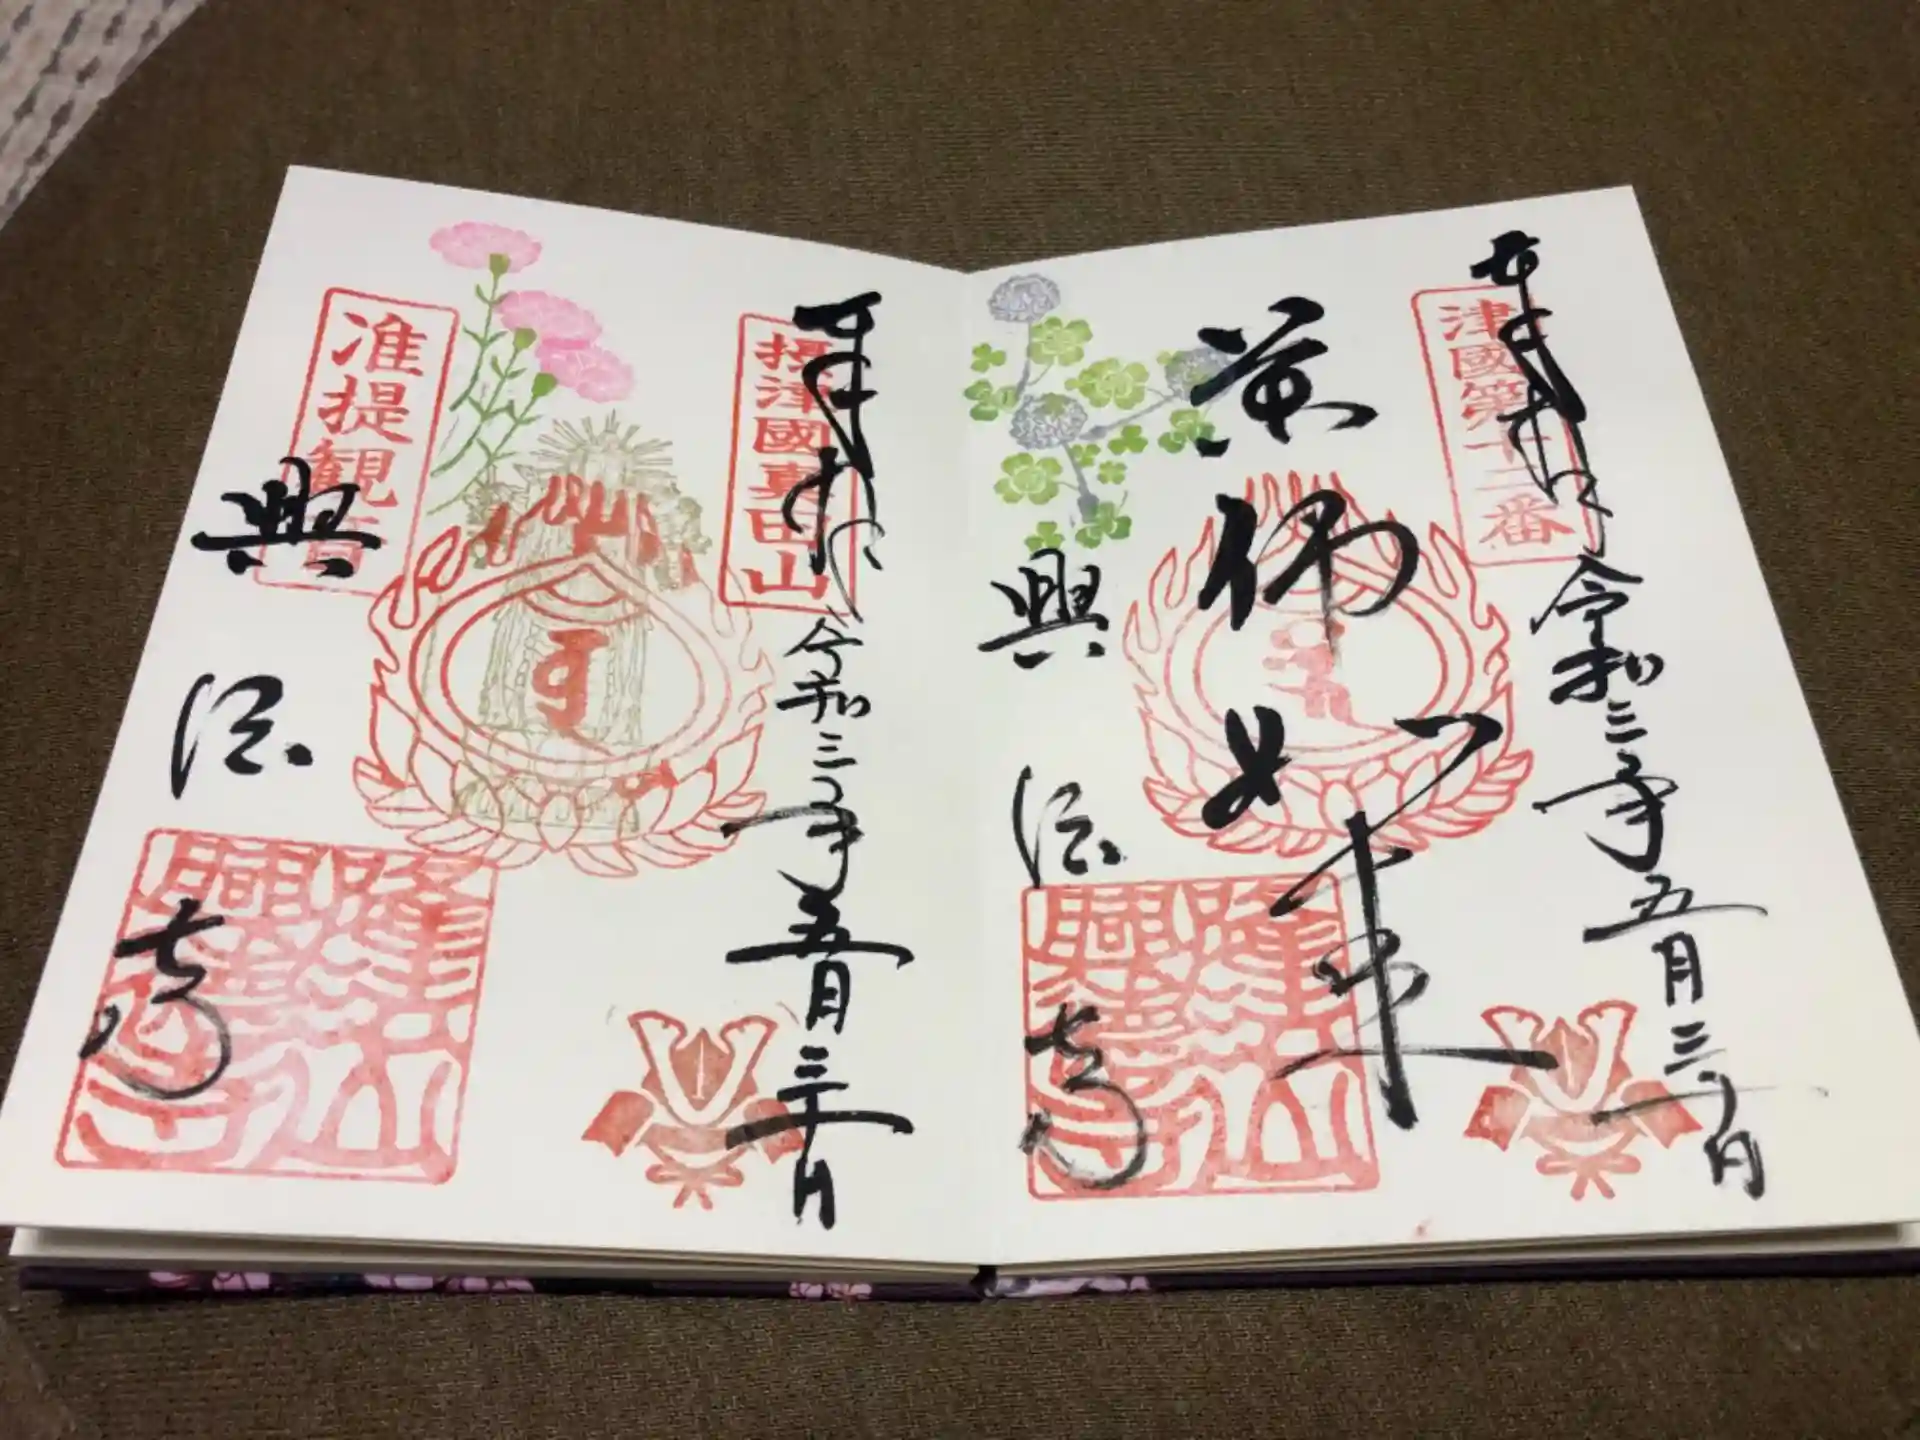 奉拝
津國第十二番
令和三年五月三十日
薬師如来
興徳寺
奉拝
摂津國真田山
令和三年五月三十日
准提観音
興徳寺